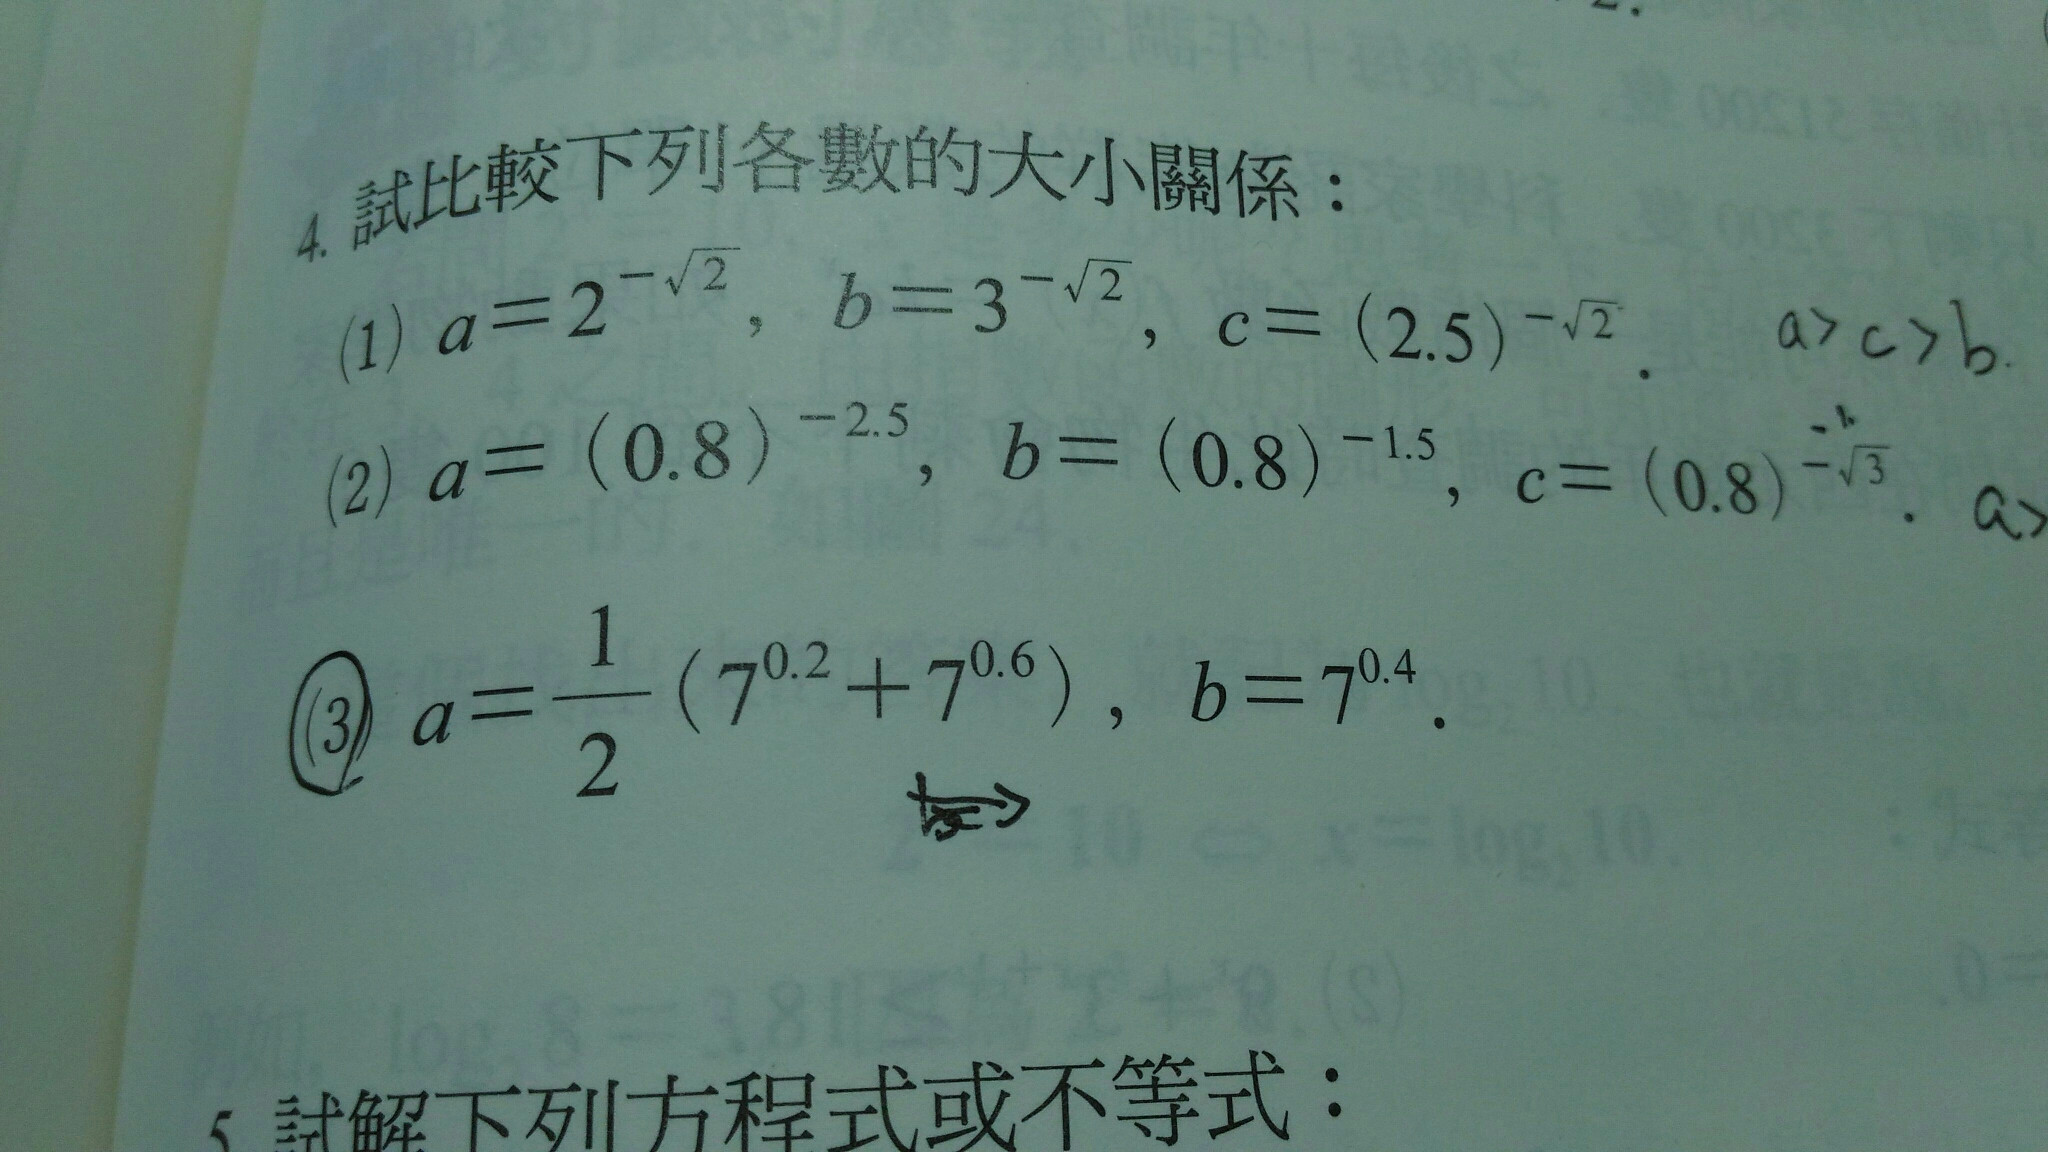 4. 試比較下列各數的大小關係：
(1) a=2^{-√2}, b=3^{-√2}, c=(2.5)^{-√2}. a>c>b.
(2) a=(0.8)^{-2.5}, b=(0.8)^{-1.5}, c=(0.8)^{-√3}. a>
(3) a=\frac{1}{2}(7^{0.2}+7^{0.6}), b=7^{0.4}.
5. 試解下列方程式或不等式：